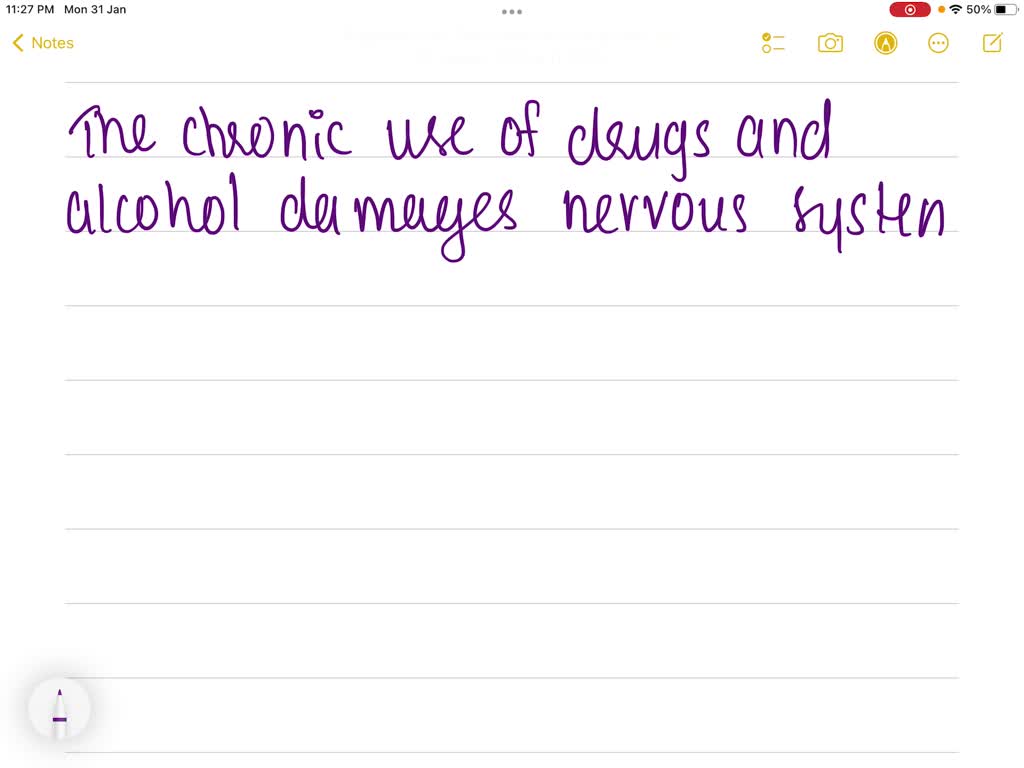 11:27 PM Mon 31 Jan 50%
Notes
The chronic use of drugs and
alcohol damages nervous systen